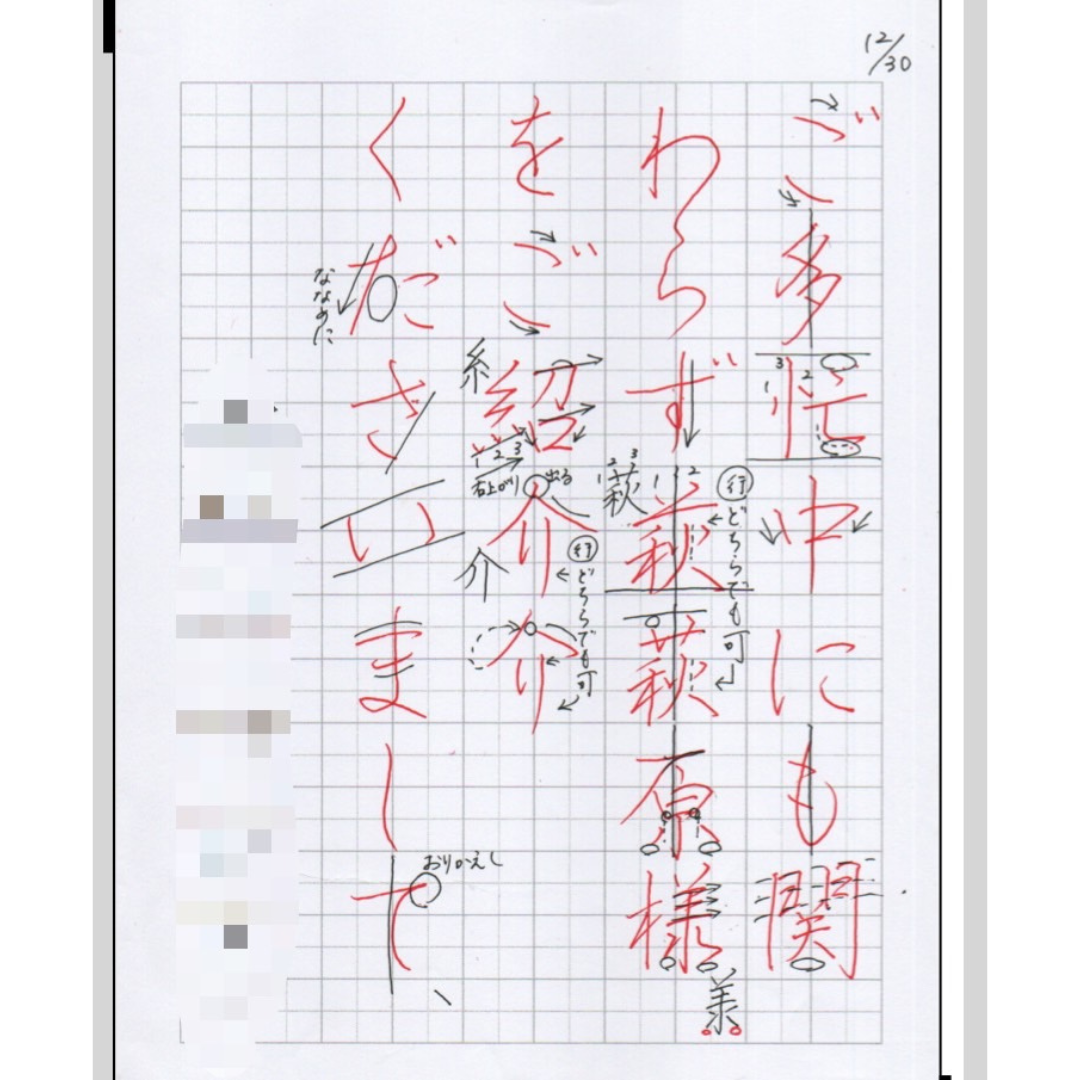 12/30
ご多忙中にも関
わらず萩萩原様
をご紹介介
くださいまして、
3
1
2
1
2
3
萩
1
2
行
どちらでも可
糸
1 2 3
右上がり
出る
介
行
どちらでも可
ななめに
おりかえし